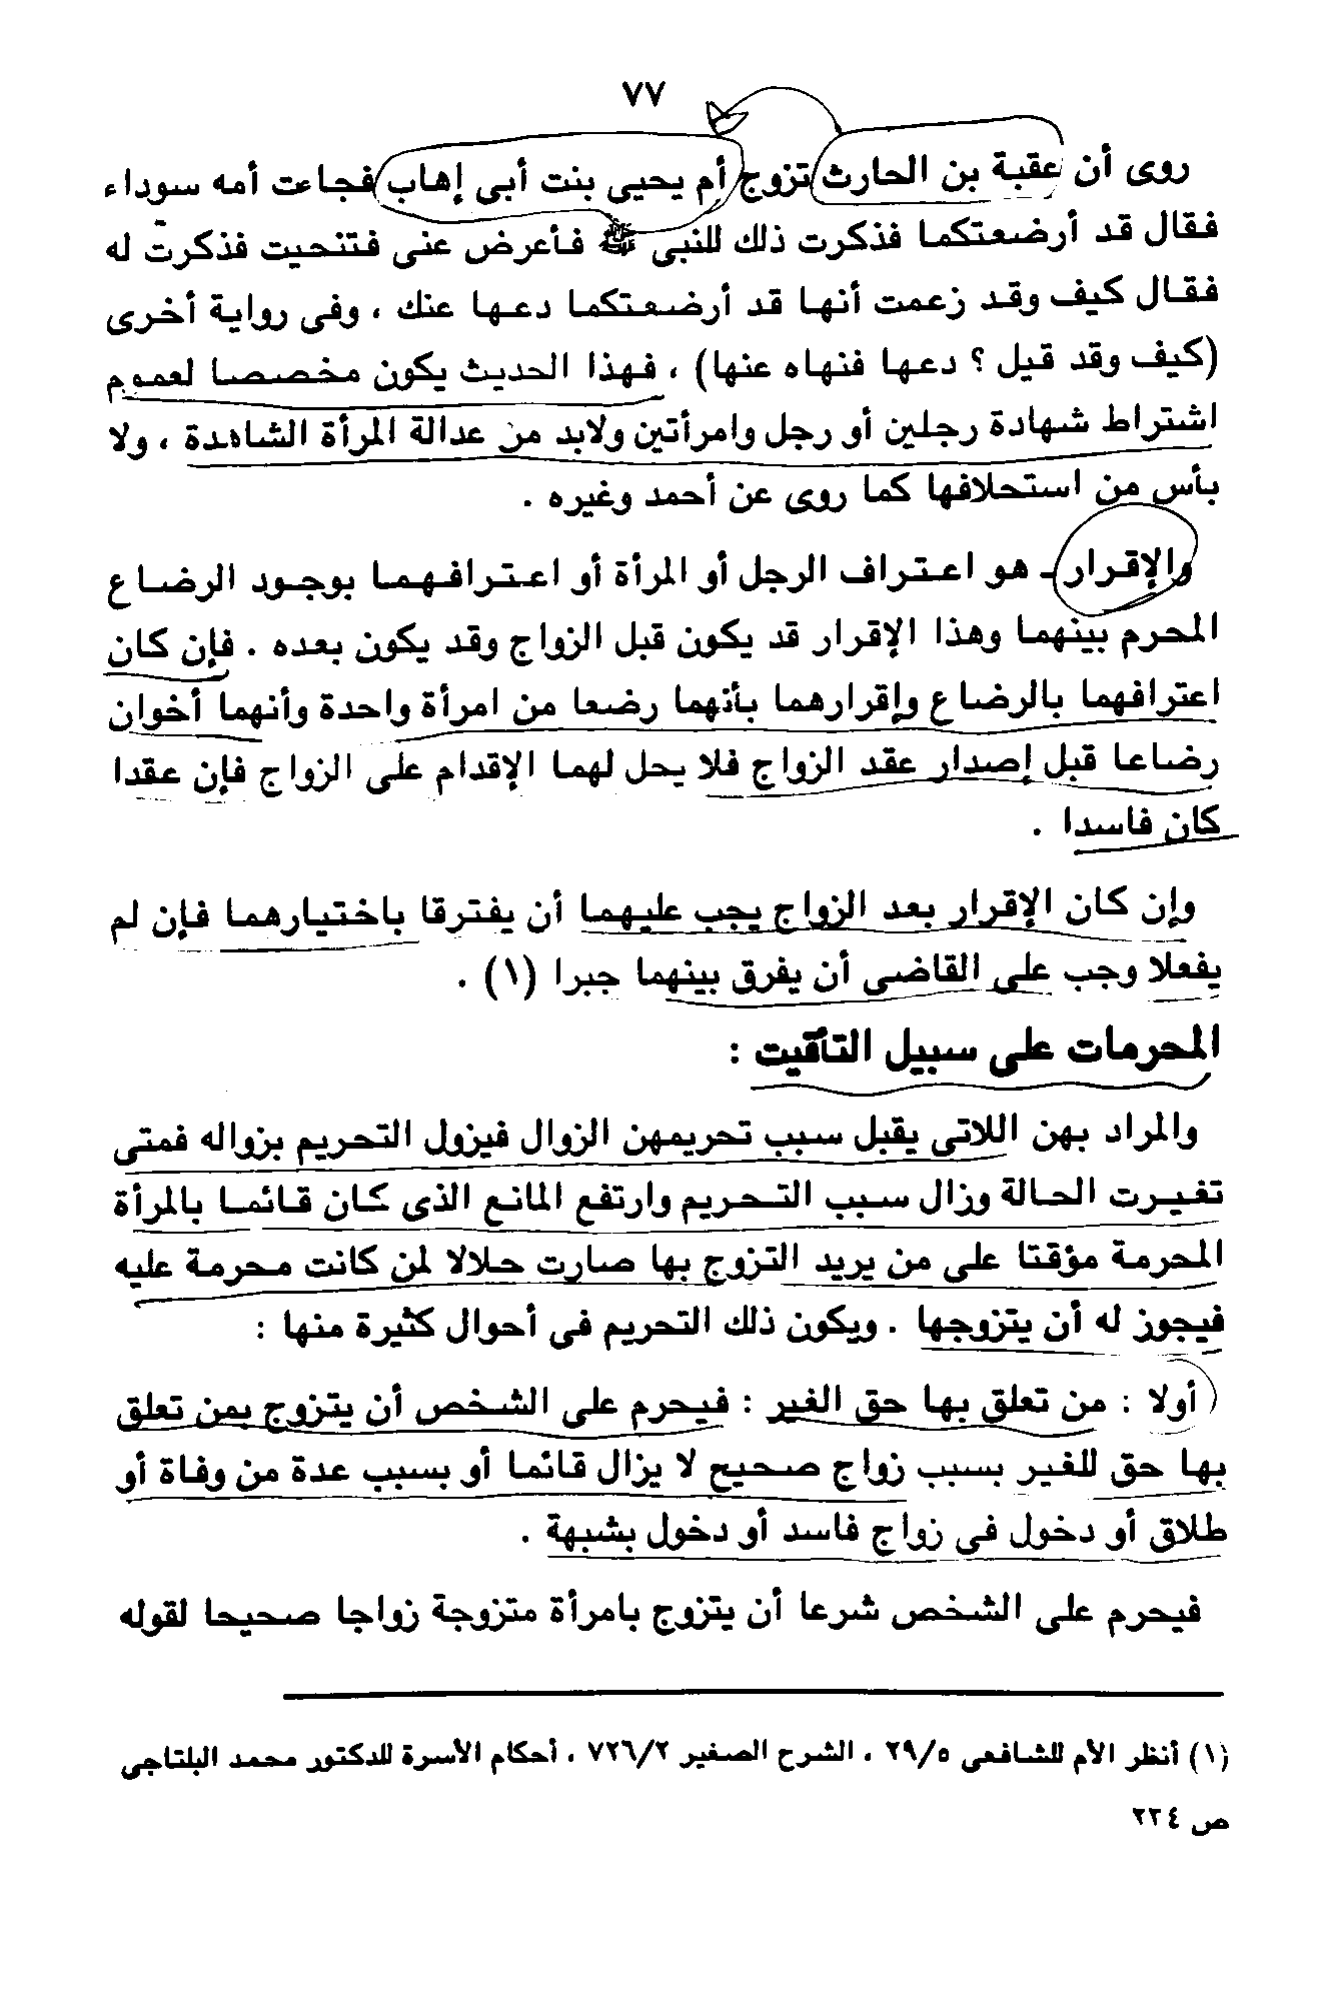 ٧٧
روى أن عقبة بن الحارث تزوج أم يحيى بنت أبى إهاب فجاءت أمه سوداء
فقال قد أرضعتكما فذكرت ذلك للنبى ﷺ فأعرض عنى فتنحيت فذكرت له
فقال كيف وقد زعمت أنها قد أرضعتكما دعها عنك ، وفى رواية أخرى
(كيف وقد قيل ؟ دعها فنهاه عنها) ، فهذا الحديث يكون مخصصا لعموم
اشتراط شهادة رجلين أو رجل وامرأتين ولابد من عدالة المرأة الشاهدة ، ولا
بأس من استحلافها كما روى عن أحمد وغيره .
والإقرار - هو اعتراف الرجل أو المرأة أو اعترافهما بوجود الرضاع
المحرم بينهما وهذا الإقرار قد يكون قبل الزواج وقد يكون بعده . فإن كان
اعترافهما بالرضاع وإقرارهما بأنهما رضعا من امرأة واحدة وأنهما أخوان
رضاعا قبل إصدار عقد الزواج فلا يحل لهما الإقدام على الزواج فإن عقدا
كان فاسدا .
وإن كان الإقرار بعد الزواج يجب عليهما أن يفترقا باختيارهما فإن لم
يفعلا وجب على القاضى أن يفرق بينهما جبرا (١) .
المحرمات على سبيل التأقيت :
والمراد بهن اللاتى يقبل سبب تحريمهن الزوال فيزول التحريم بزواله فمتى
تغيرت الحالة وزال سبب التحريم وارتفع المانع الذى كان قائما بالمرأة
المحرمة مؤقتا على من يريد التزوج بها صارت حلالا لمن كانت محرمة عليه
فيجوز له أن يتزوجها . ويكون ذلك التحريم فى أحوال كثيرة منها :
أولا : من تعلق بها حق الغير : فيحرم على الشخص أن يتزوج بمن تعلق
بها حق للغير بسبب زواج صحيح لا يزال قائما أو بسبب عدة من وفاة أو
طلاق أو دخول فى زواج فاسد أو دخول بشبهة .
فيحرم على الشخص شرعا أن يتزوج بامرأة متزوجة زواجا صحيحا لقوله
(١) أنظر الأم للشافعى ٢٩/٥ ، الشرح الصغير ٧٢٦/٢ ، أحكام الأسرة للدكتور محمد البلتاجى
ص ٢٢٤